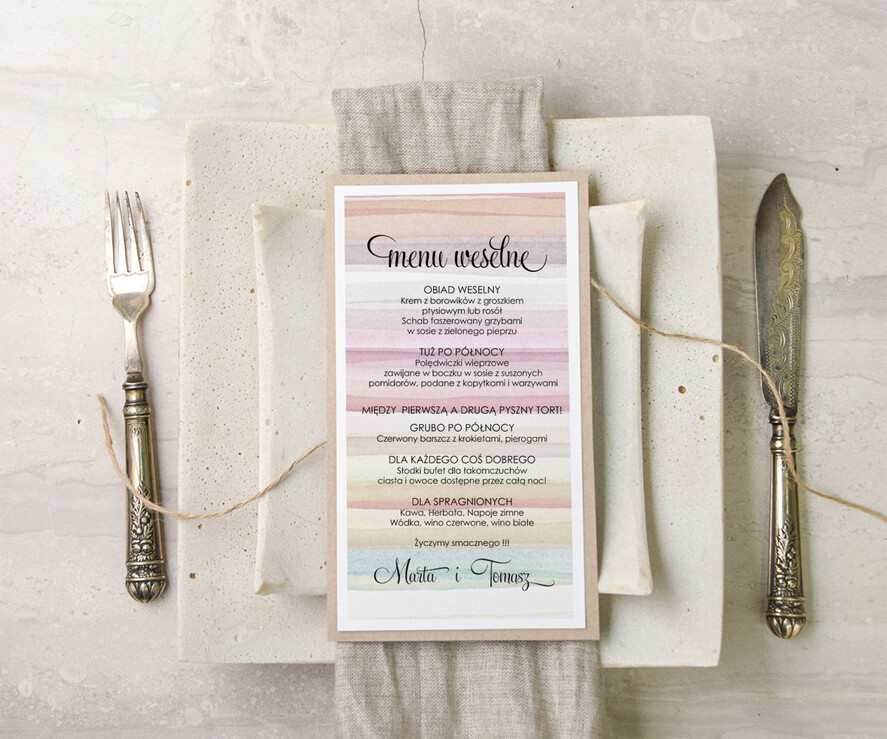 menu weselne
OBIAD WESELNY
Krem z borowików z groszkiem
ptysiowym lub rosół
Schab faszerowany grzybami
w sosie z zielonego pieprzu
TUŻ PO PÓŁNOCY
Polędwiczki wieprzowe
zawijane w boczku w sosie z suszonych
pomidorów, podane z kopytkami i warzywami
MIĘDZY PIERWSZĄ A DRUGĄ PYSZNY TORT!
GRUBO PO PÓŁNOCY
Czerwony barszcz z krokietami, pierogami
DLA KAŻDEGO COŚ DOBREGO
Słodki bufet dla łakomczuchów
ciasta i owoce dostępne przez całą noc!
DLA SPRAGNIONYCH
Kawa, Herbata, Napoje zimne
Wódka, wino czerwone, wino białe
Życzymy smacznego !!!
Marta i Tomasz